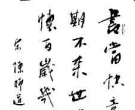 書當快意
期不來世
懷百歲幾
宋陳師道